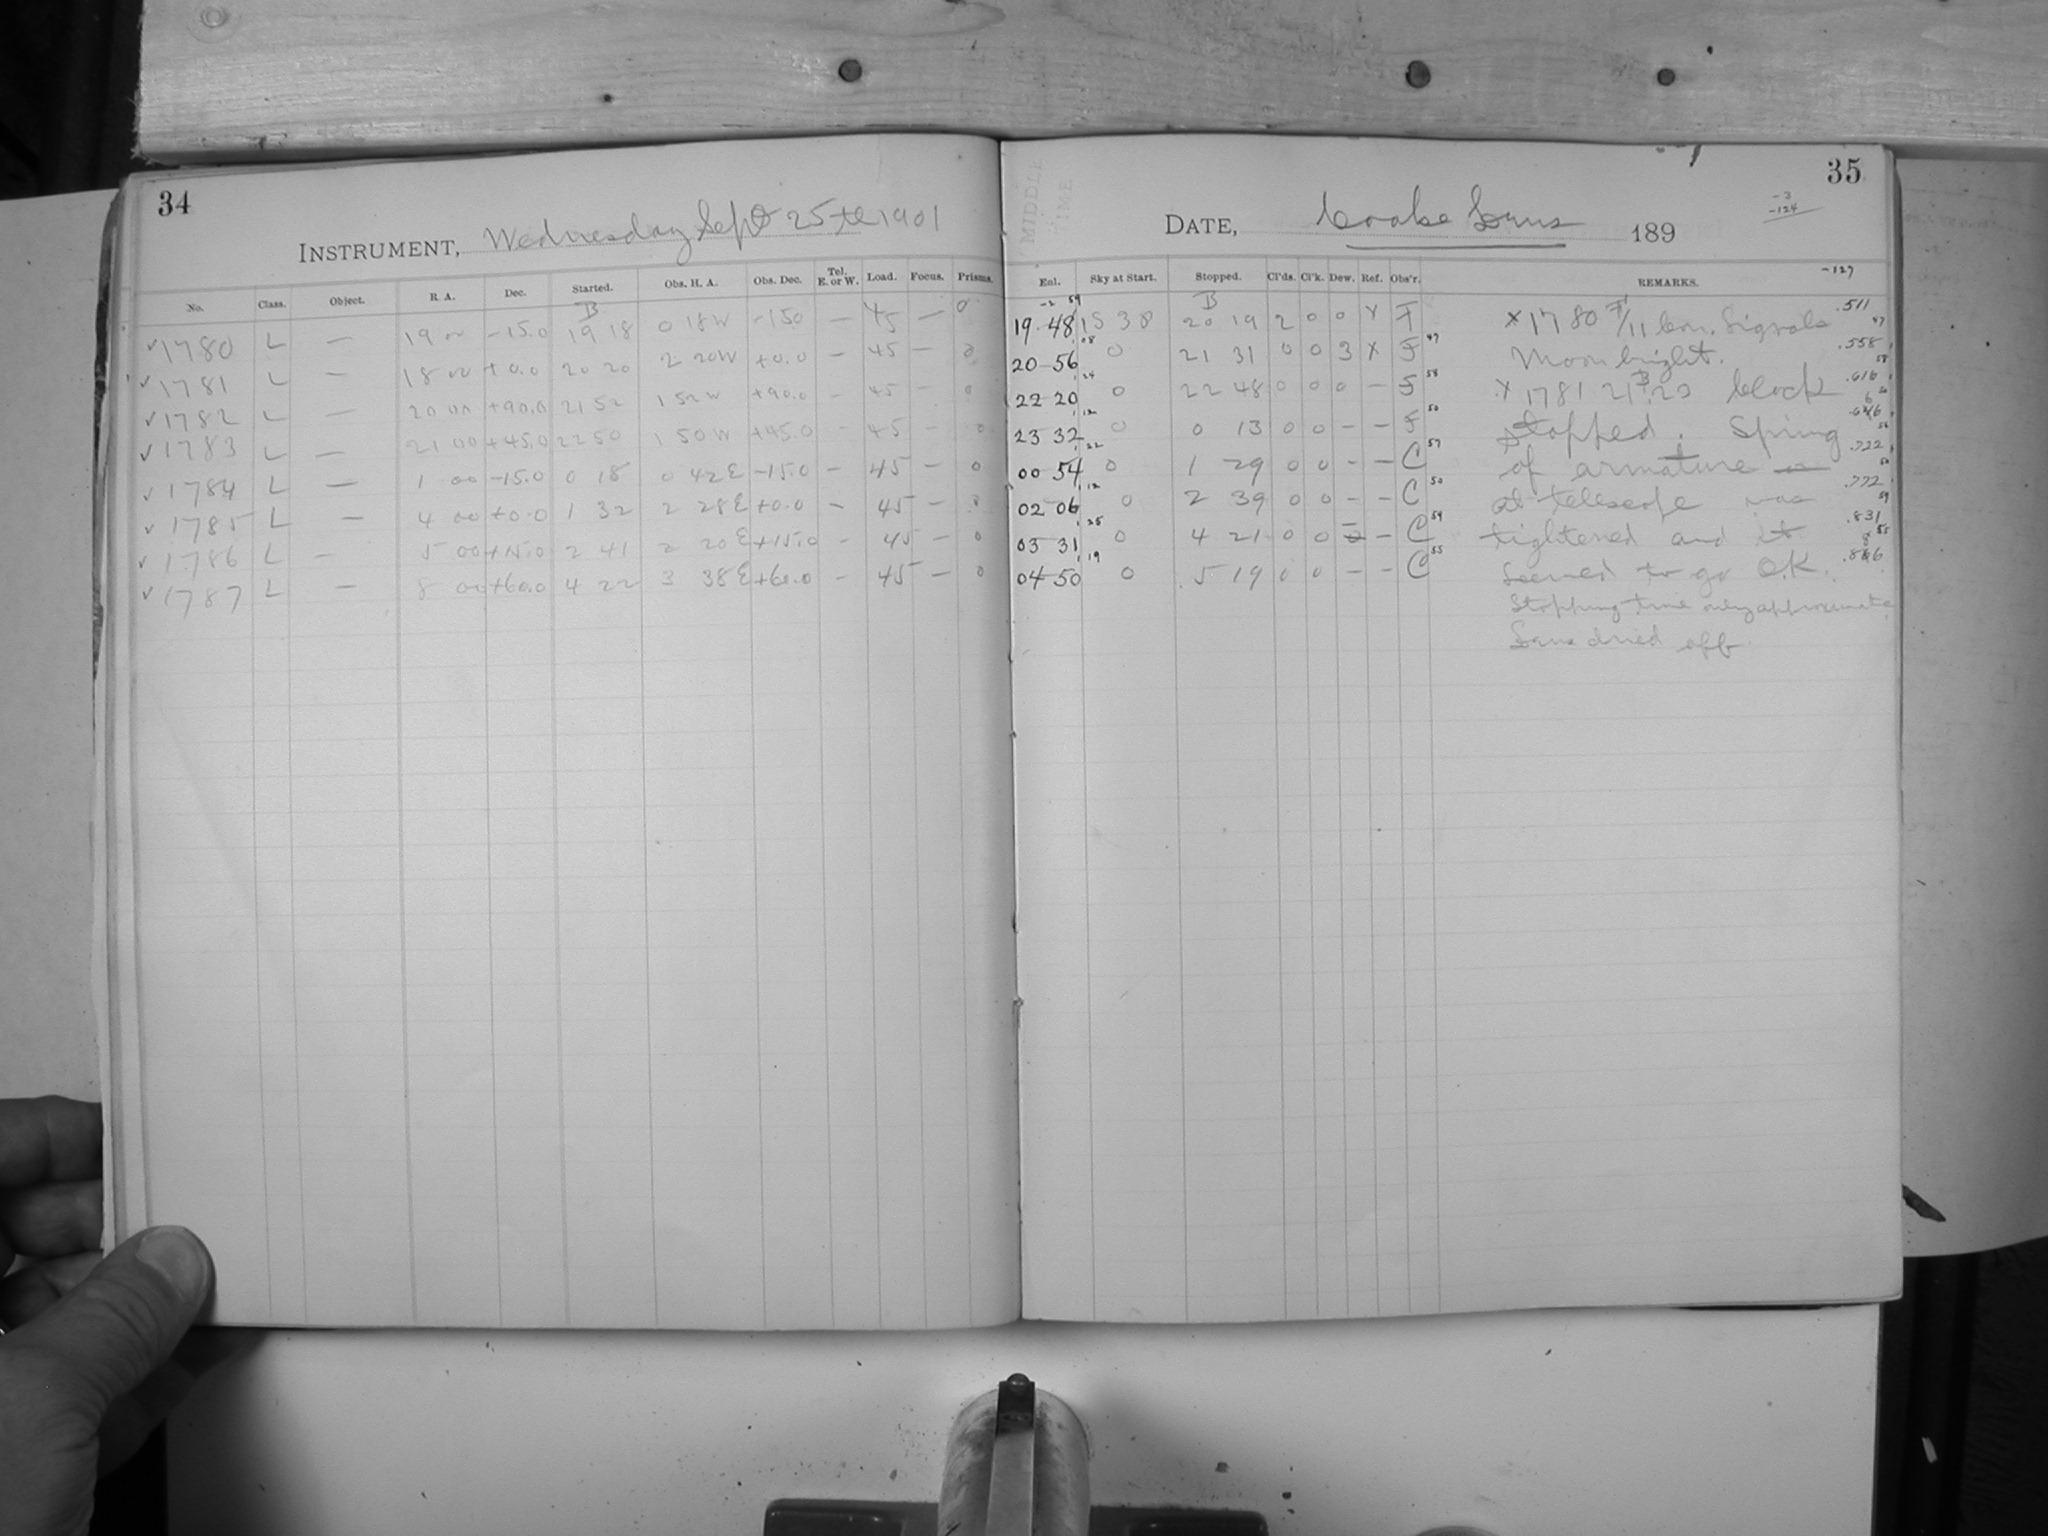 34
INSTRUMENT, Wednesday Sept 25th 1901
No. Class. Object. R. A. Dec. Started. Obs. H. A. Obs. Dec. Tel. E. or W. Load. Focus. Prisms.
B
✓1780 L — 19 00 -15.0 19 18 0 18W -15.0 — 45 — 0
✓1781 L — 18 00 +0.0 20 20 2 20W +0.0 — 45 — 0
✓1782 L — 20 00 +90.0 21 52 1 52W +90.0 — 45 — 0
✓1783 L — 21 00 +45.0 22 50 1 50W +45.0 — 45 — 0
✓1784 L — 1 00 -15.0 0 18 0 42E -15.0 — 45 — 0
✓1785 L — 4 00 +0.0 1 32 2 28E +0.0 — 45 — 0
✓1786 L — 5 00 +15.0 2 41 2 20E +15.0 — 45 — 0
✓1787 L — 8 00 +60.0 4 22 3 38E +60.0 — 45 — 0
35
MIDDLE TIME
-3
-124
DATE, Cooke Lens 189
-127
Enl. Sky at Start. Stopped. Cl'ds. Cl'k. Dew. Ref. Obs'r. REMARKS.
-2 59 B
19 48 1S 38 20 19 2 0 0 X F X 1780 Signals .511
20 56 08 0 21 31 0 0 3 X F 47 Moon bright. .558 47
22 20 24 0 22 48 0 0 0 — F 58 X 1781 21 20 Clock .616 58
23 32 12 0 0 13 0 0 — — F 50 stopped. Spring 50
00 54 22 0 1 29 0 0 — — C 57 of armature .722
02 06 12 0 2 39 0 0 — — C 50 at telescope was .772 50
03 31 25 0 4 21 0 0 — C 59 tightened and it .831 59
04 50 19 0 5 19 0 0 — — C 55 seemed to go O.K. 55
Stopping time only approximate
Lens dried off